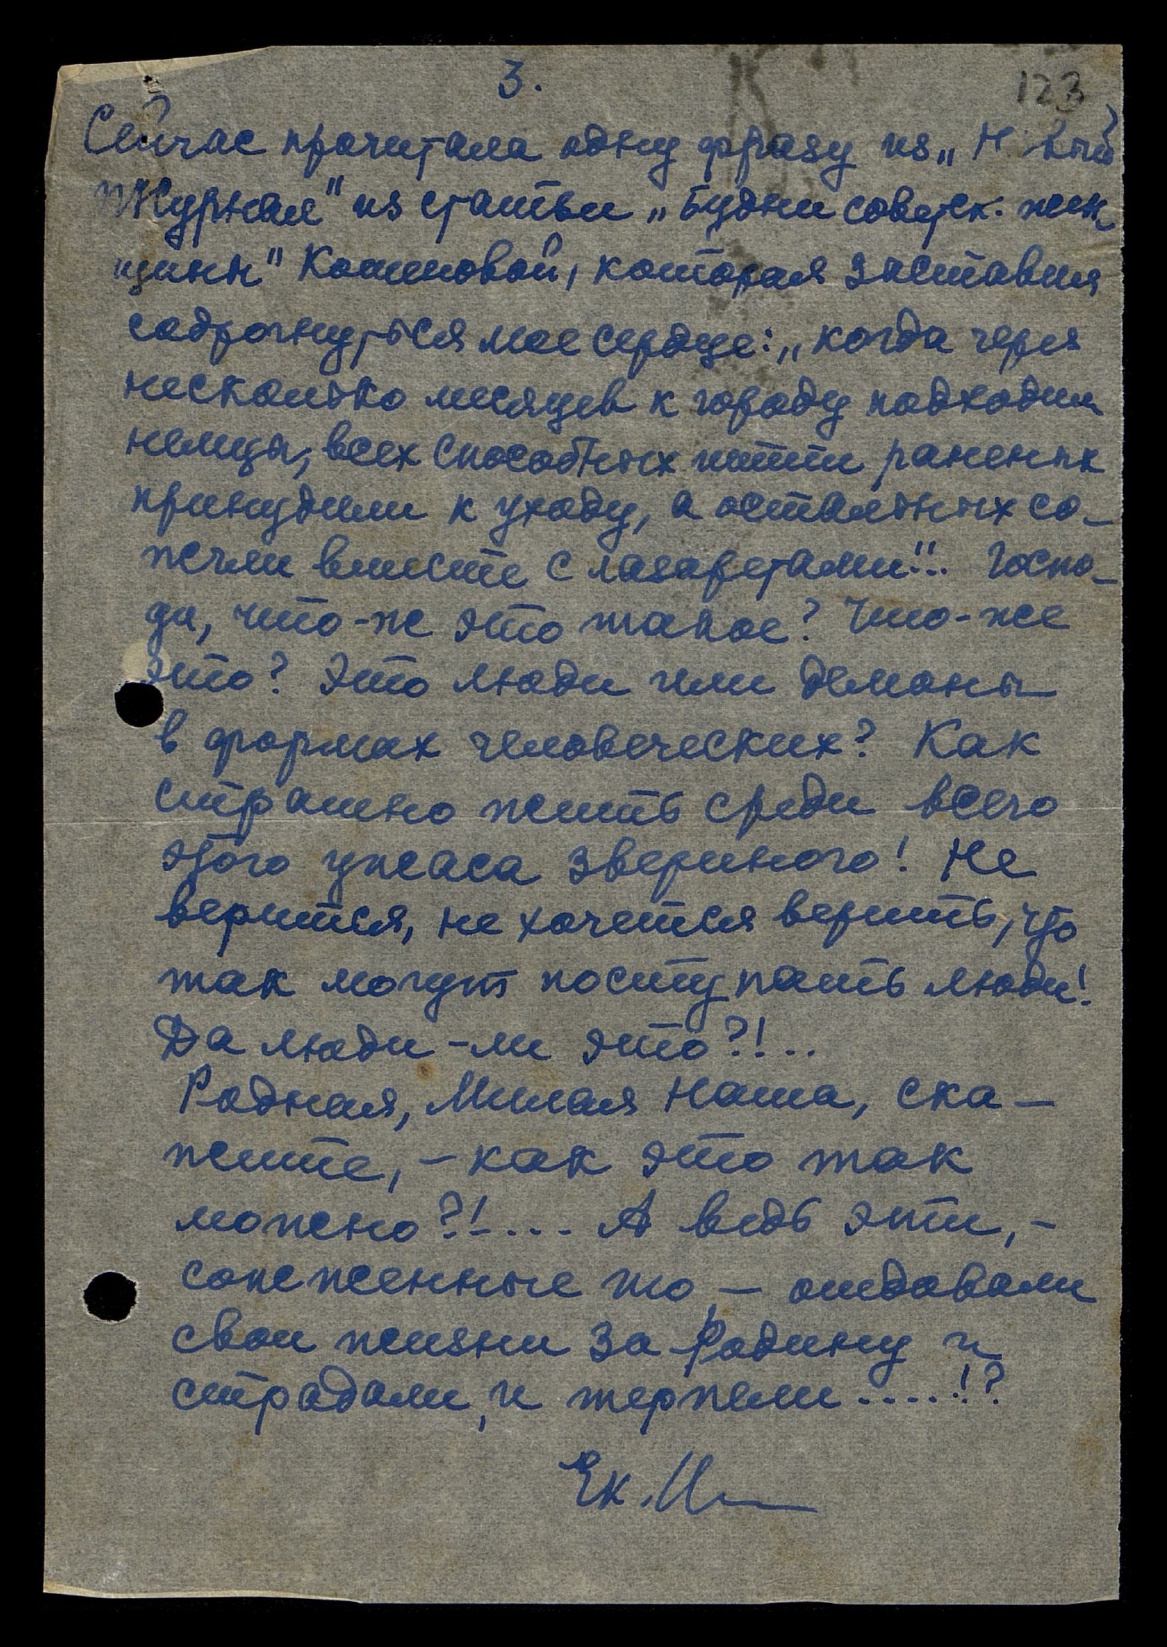 3.
123
Сейчас прочитала одну фразу из „Н. вый
Журнал" из статьи „Будни советск. жен
щины" Кошновой, которая заставила
содрогнуться мое сердце: „когда через
несколько месяцев к городу подходили
немцы, всех способных итти раненых
принудили к уходу, а остальных со-
жгли вместе с лазаретами"!.. Госпо-
ди, что-ж это такое? Что-же
это? Это люди или демоны
в формах человеческих? Как
страшно жить среди всего
этого ужаса звериного! Не
верится, не хочется верить, что
так могут поступать люди!
Да люди-ли это?!..
Родная, Милая Наша, ска-
жите, – как это так
можно?!.... А ведь эти, –
сожженные то – отдавали
свои жизни за Родину и
страдали, и терпели.....!?
Ек.